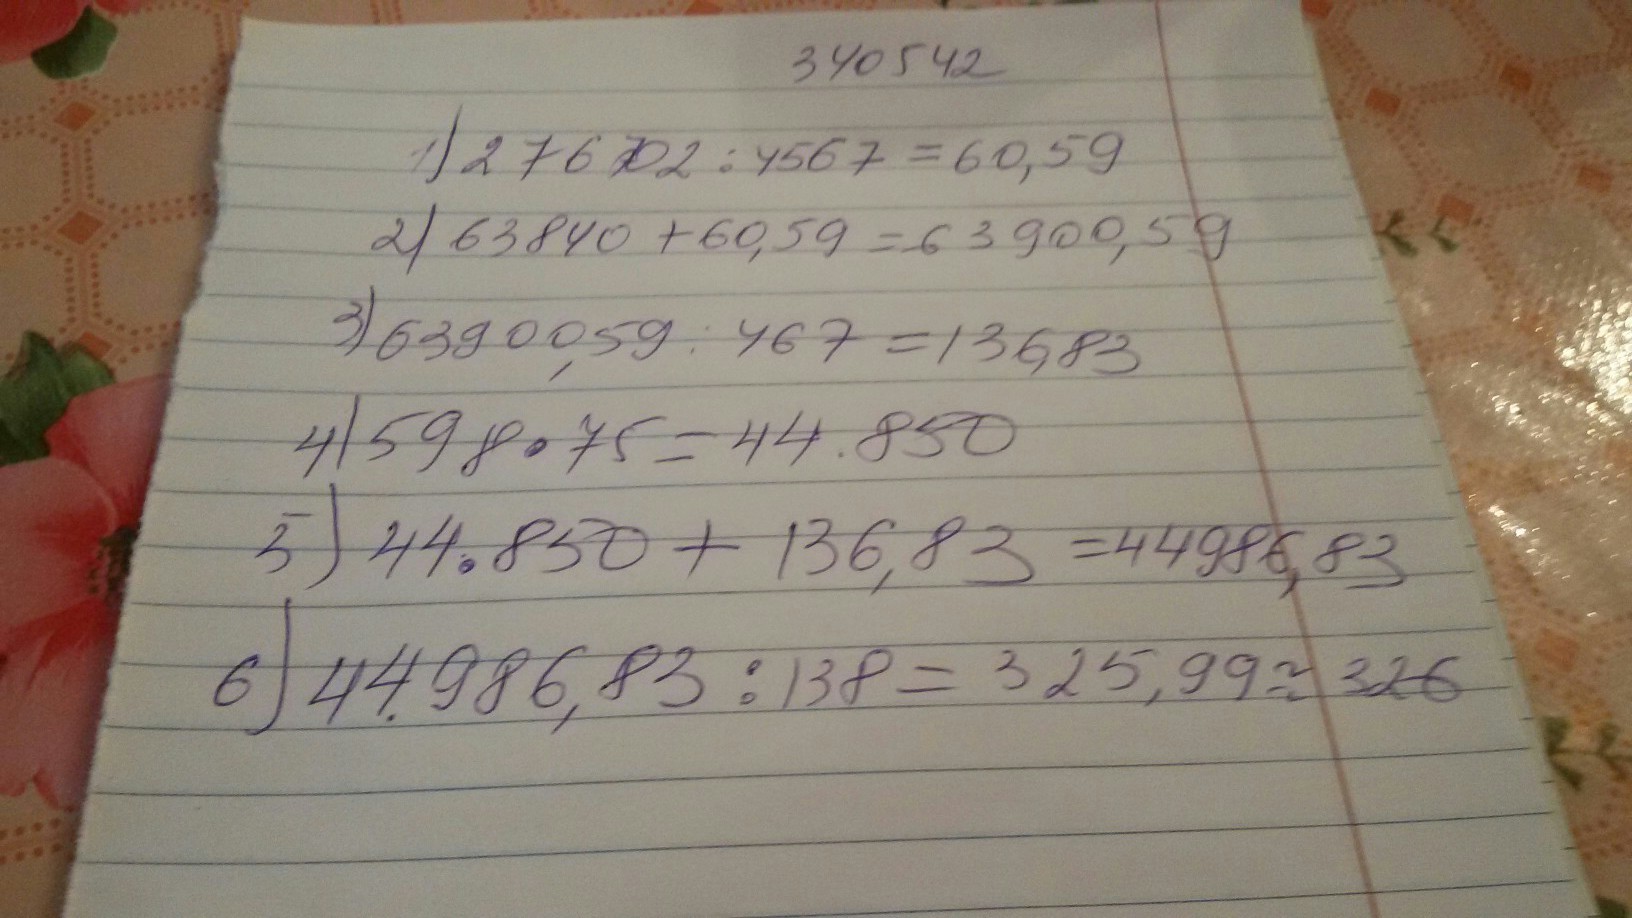 340542
1) 276702 : 4567 = 60,59
2) 63840 + 60,59 = 63900,59
3) 63900,59 : 467 = 136,83
4) 598 • 75 = 44.850
5) 44.850 + 136,83 = 44986,83
6) 44.986,83 : 138 = 325,99 ≈ 326